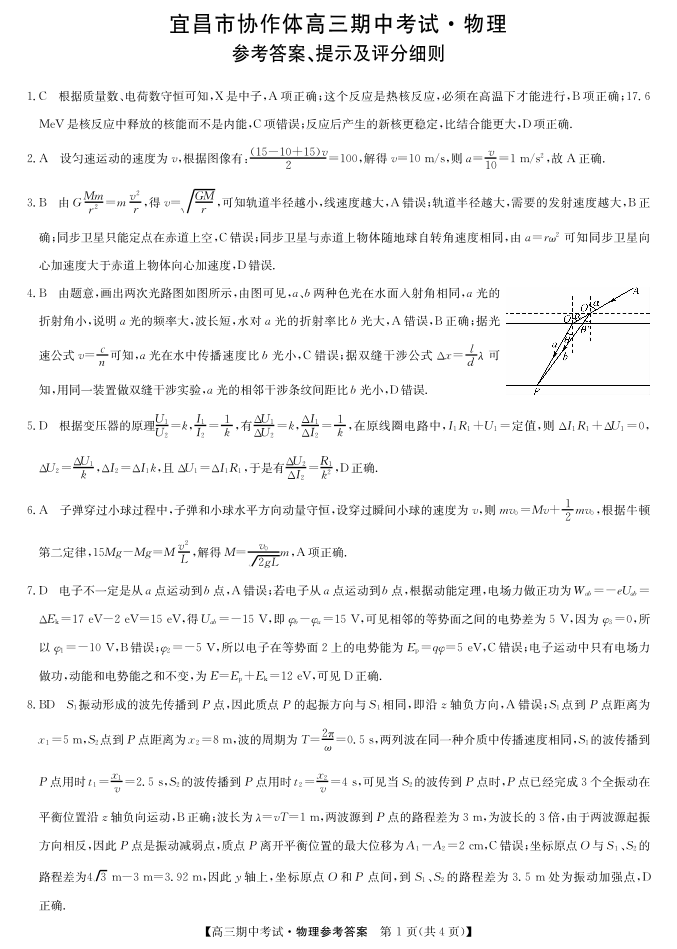 宜昌市协作体高三期中考试·物理
参考答案、提示及评分细则
1.C 根据质量数、电荷数守恒可知,X是中子,A项正确;这个反应是热核反应,必须在高温下才能进行,B项正确;17.6
MeV是核反应中释放的核能而不是内能,C项错误;反应后产生的新核更稳定,比结合能更大,D项正确.
2.A 设匀速运动的速度为v,根据图像有:(15-10+15)v/2=100,解得v=10 m/s,则a=v/10=1 m/s²,故A正确.
3.B 由G Mm/r²=m v²/r,得v=√(GM/r),可知轨道半径越小,线速度越大,A错误;轨道半径越大,需要的发射速度越大,B正
确;同步卫星只能定点在赤道上空,C错误;同步卫星与赤道上物体随地球自转角速度相同,由a=rω²可知同步卫星向
心加速度大于赤道上物体向心加速度,D错误.
4.B 由题意,画出两次光路图如图所示,由图可见,a、b两种色光在水面入射角相同,a光的
折射角小,说明a光的频率大,波长短,水对a光的折射率比b光大,A错误,B正确;据光
速公式v=c/n可知,a光在水中传播速度比b光小,C错误;据双缝干涉公式Δx=l/d λ可
知,用同一装置做双缝干涉实验,a光的相邻干涉条纹间距比b光小,D错误.
A
α
O
a
b
P
5.D 根据变压器的原理U₁/U₂=k,I₁/I₂=1/k,有ΔU₁/ΔU₂=k,ΔI₁/ΔI₂=1/k,在原线圈电路中,I₁R₁+U₁=定值,则ΔI₁R₁+ΔU₁=0,
ΔU₂=ΔU₁/k,ΔI₂=ΔI₁k,且ΔU₁=ΔI₁R₁,于是有ΔU₂/ΔI₂=R₁/k²,D正确.
6.A 子弹穿过小球过程中,子弹和小球水平方向动量守恒,设穿过瞬间小球的速度为v,则mv₀=Mv+1/2 mv₀,根据牛顿
第二定律,15Mg-Mg=M v²/L,解得M=v₀/√(2gL) m,A项正确.
7.D 电子不一定是从a点运动到b点,A错误;若电子从a点运动到b点,根据动能定理,电场力做正功为Wₐb=-eUₐb=
ΔEₖ=17 eV-2 eV=15 eV,得Uₐb=-15 V,即φb-φₐ=15 V,可见相邻的等势面之间的电势差为5 V,因为φ₃=0,所
以φ₁=-10 V,B错误;φ₂=-5 V,所以电子在等势面2上的电势能为Eₚ=qφ=5 eV,C错误;电子运动中只有电场力
做功,动能和电势能之和不变,为E=Eₚ+Eₖ=12 eV,可见D正确.
8.BD S₁振动形成的波先传播到P点,因此质点P的起振方向与S₁相同,即沿z轴负方向,A错误;S₁点到P点距离为
x₁=5 m,S₂点到P点距离为x₂=8 m,波的周期为T=2π/ω=0.5 s,两列波在同一种介质中传播速度相同,S₁的波传播到
P点用时t₁=x₁/v=2.5 s,S₂的波传播到P点用时t₂=x₂/v=4 s,可见当S₂的波传到P点时,P点已经完成3个全振动在
平衡位置沿z轴负向运动,B正确;波长为λ=vT=1 m,两波源到P点的路程差为3 m,为波长的3倍,由于两波源起振
方向相反,因此P点是振动减弱点,质点P离开平衡位置的最大位移为A₁-A₂=2 cm,C错误;坐标原点O与S₁、S₂的
路程差为4√3 m-3 m=3.92 m,因此y轴上,坐标原点O和P点间,到S₁、S₂的路程差为3.5 m处为振动加强点,D
正确.
【高三期中考试·物理参考答案 第1页(共4页)】